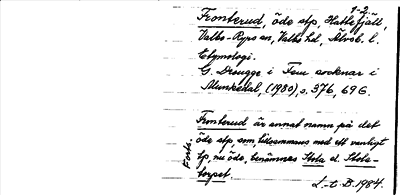 1-2.
Fronterud, öde stp, Hattefjäll,
Valbo-Ryrs sn, Valbo hd, Älvsb. l.
Etymologi.
G. Drougge i Fem socknar i
Munkedal, (1980), s. 376, 696.
Fronterud är annat namn på det
öde stp, som tillsammans med ett vanligt
tp, nu öde, benämnes Stota el. Stota-
torpet.
Forts.
L-t. B. 1984.